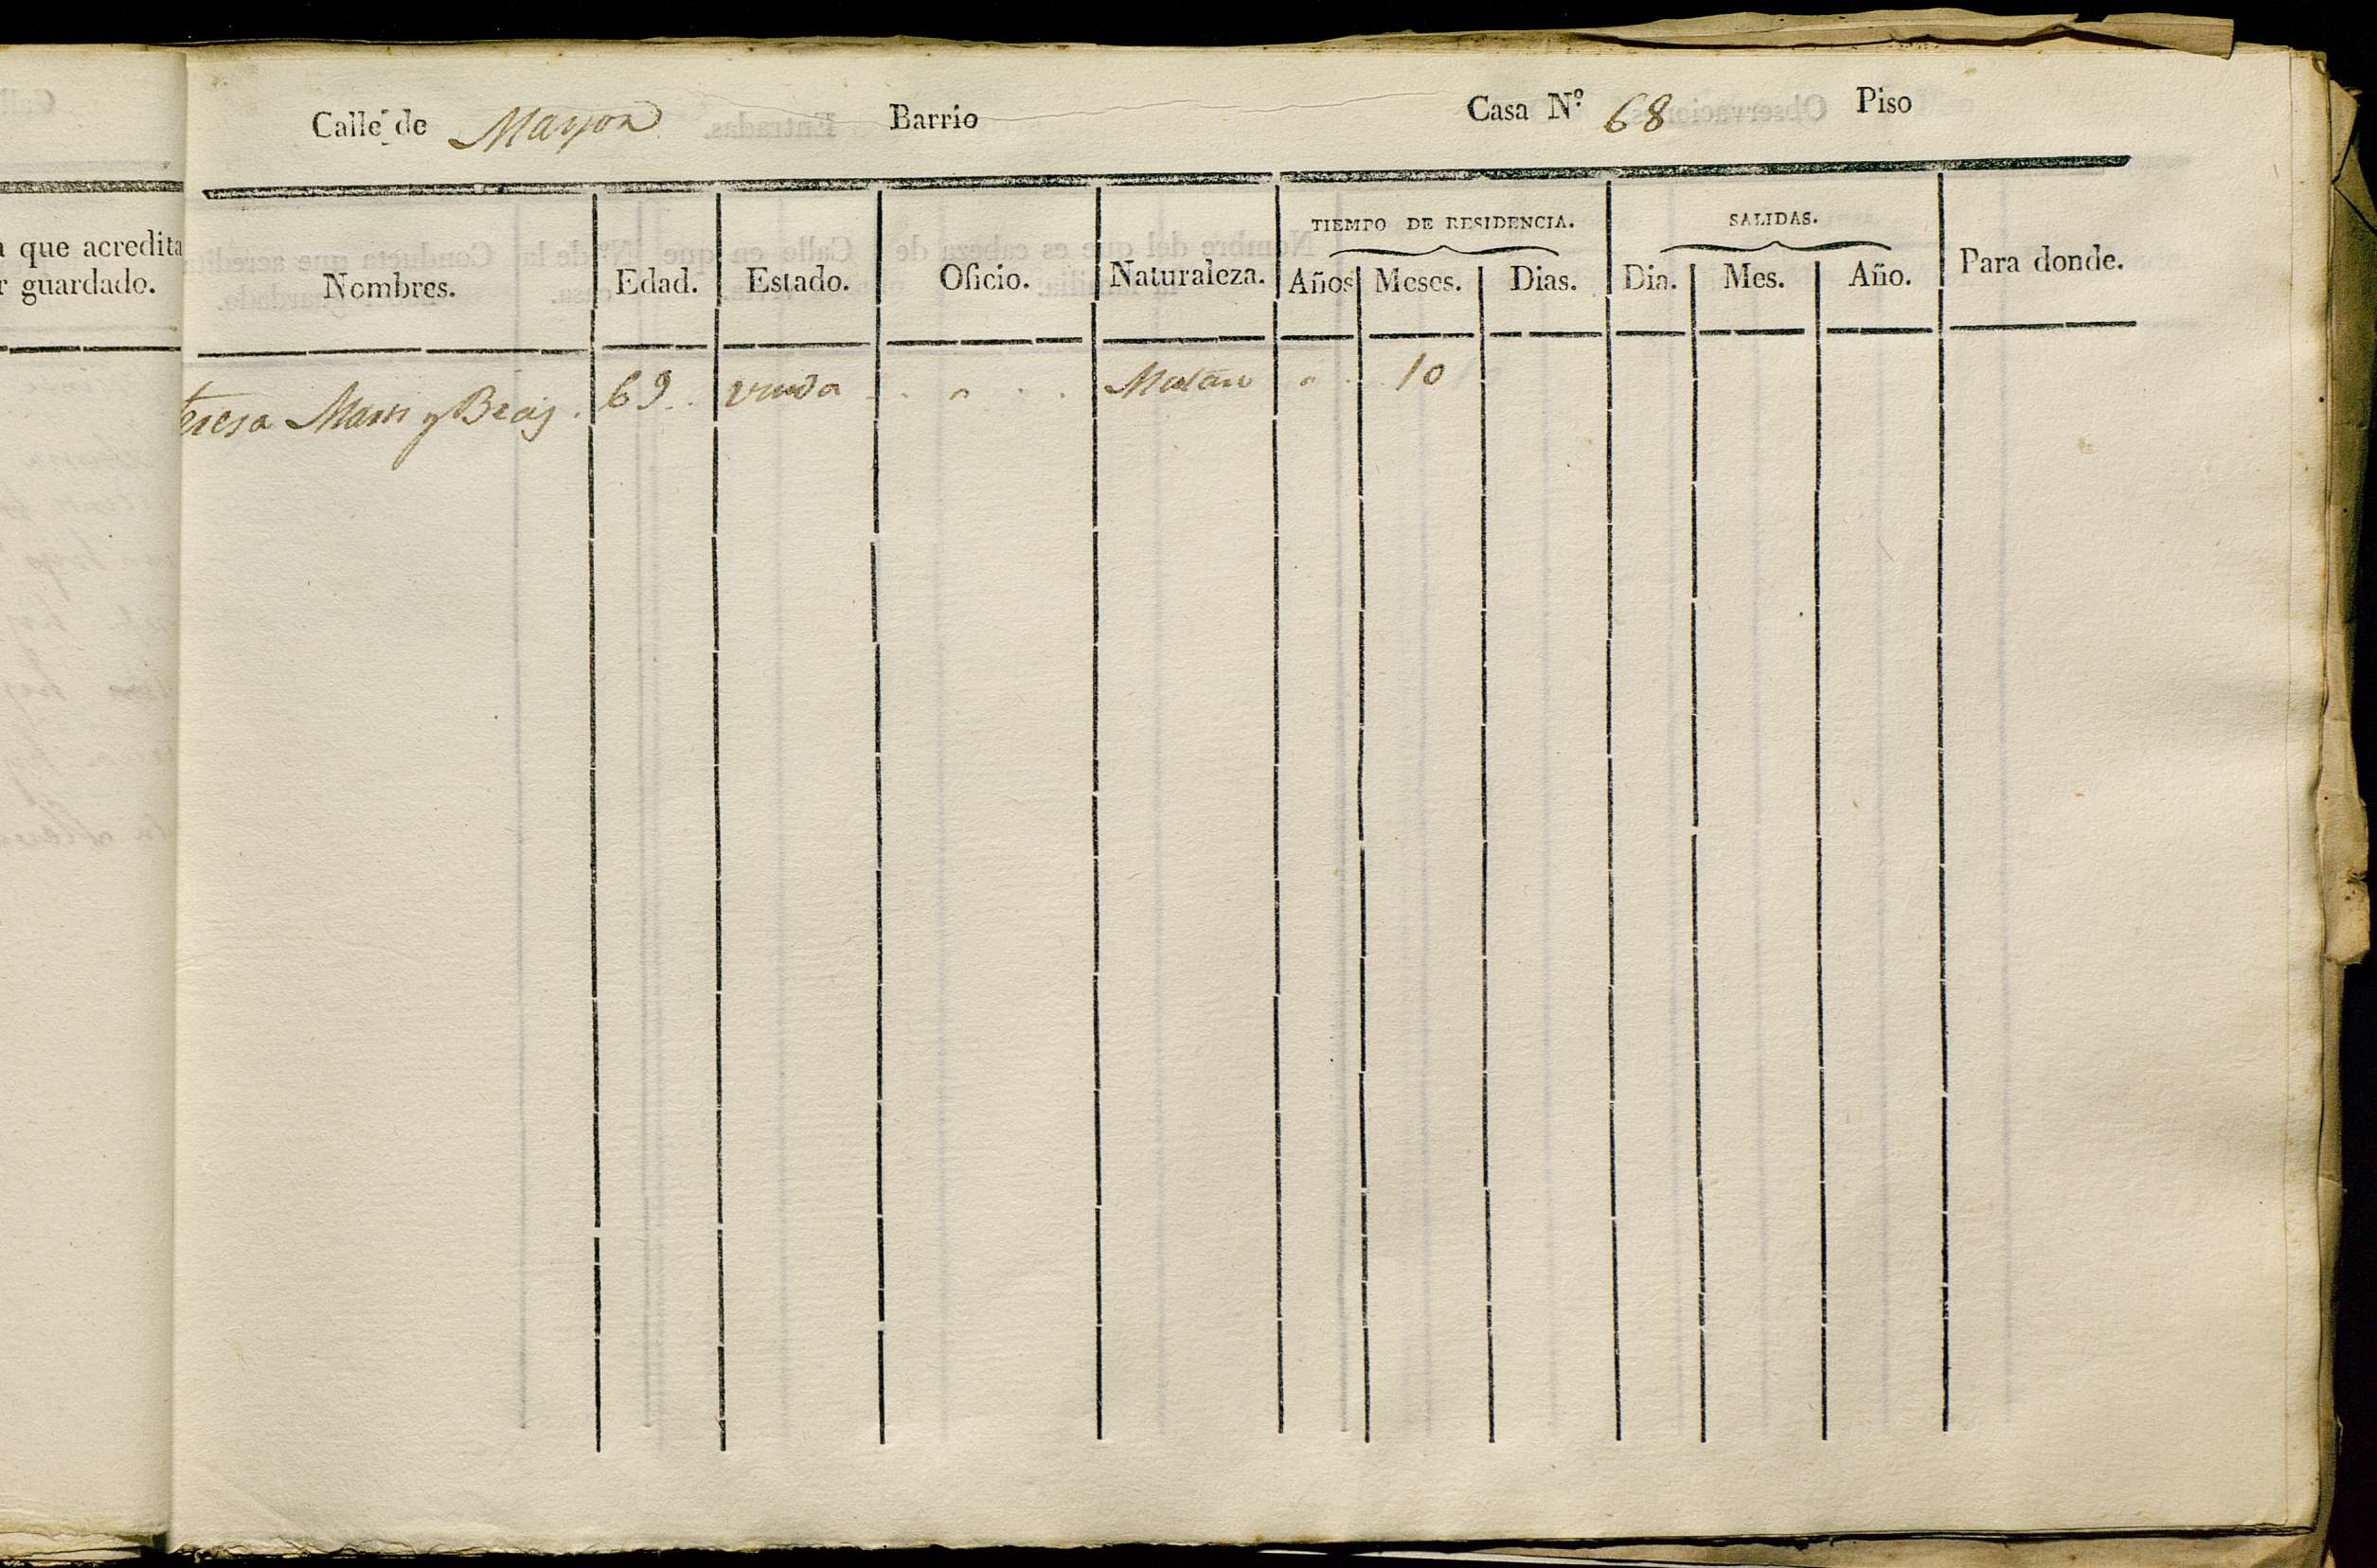 que acredita
guardado.
Calle de Mayor Barrio Casa Nº 68 Piso
TIEMPO DE RESIDENCIA. SALIDAS.
Nombres. Edad. Estado. Oficio. Naturaleza. Años Meses. Dias. Dia. Mes. Año. Para donde.
Teresa y 69 viuda 10